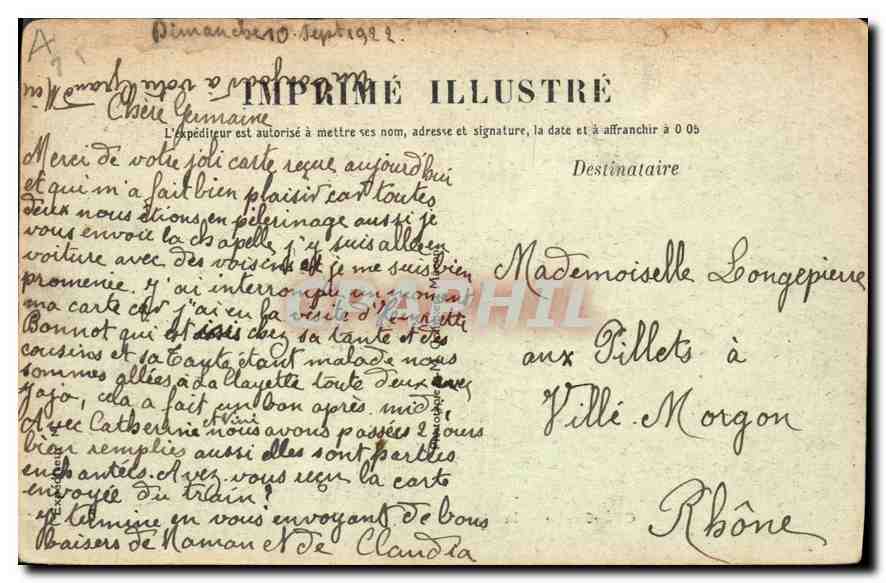 A
Dimanche 10 Sept 1922
bonjour à votre Grand Mère
IMPRIMÉ ILLUSTRÉ
Chère Germaine
L'expéditeur est autorisé à mettre ses nom, adresse et signature, la date et à affranchir à 0 05
Destinataire
Merci de votre joli carte reçue aujourd'hui
et qui m'a fait bien plaisir car toutes
deux nous étions en pélerinage aussi je
vous envoie la chapelle j'y suis allée en
voiture avec des voisins et je me suis bien
promenée. J'ai interrompu un moment
ma carte car j'ai eu la visite d'Henriette
Bonnot qui est chez sa tante et des
cousins et sa Tante étant malade nous
sommes allées à La Clayette toute deux avec
Jojo, cela a fait un bon après midi
Avec Catherine et Nini nous avons passées 2 jours
bien remplies aussi elles sont parties
enchantées. Avez vous reçu la carte
envoyée du train?
Je termine en vous envoyant de bons
baisers de Maman et de Claudia
Mademoiselle Longepierre
aux Pillets à
Villé-Morgon
Rhône
CPAPHIL